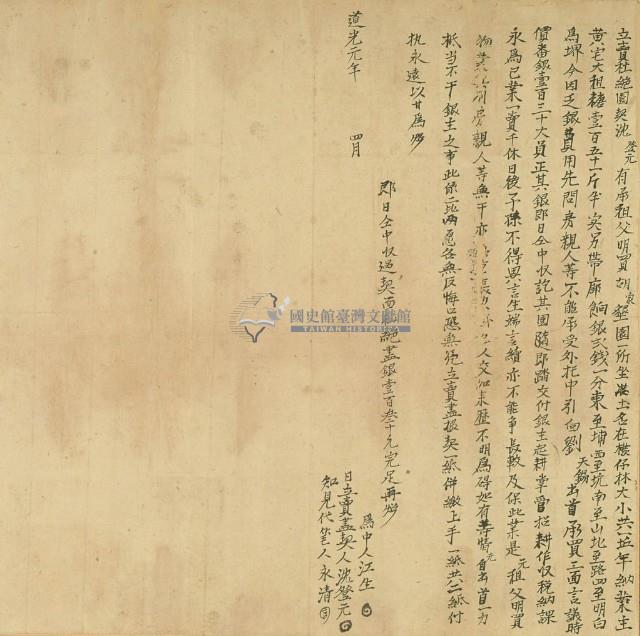 立賣杜絕園契沈登元有承祖父明買胡東墾園一所坐落土名在樓仔林大小共坵年納業主
黃宅大租糖壹百五十一斤半实另帶廊餉銀弍錢一分東至埔西至坑南至山北至路四至明白
為界今因乏銀費用先問房親人等不能承受外托中引向劉天錫出首承買三面言議時
價番銀壹百三十大員正其銀即日仝中收訖其園隨即踏交付銀主起耕掌管招耕作收稅納課
永為己業一賣千休日後子孫不得異言生端言續亦不能爭長較及保此業是元祖父明買
物業與別房親人等無干亦人交加來歷不明為碍如有等情元自出首一力
抵当不干銀主之事此係二比兩愿各無反悔口恐無凭立賣盡根契一紙併繳上手一紙共二紙付
执永遠以廿為炤
即日仝中收過契面絕盡銀壹百叁十元完足再炤
道光元年 四月
為中人江生
日立賣盡契人沈登元
知見代筆人永清
國史館臺灣文獻館
TAIWAN HISTORICA